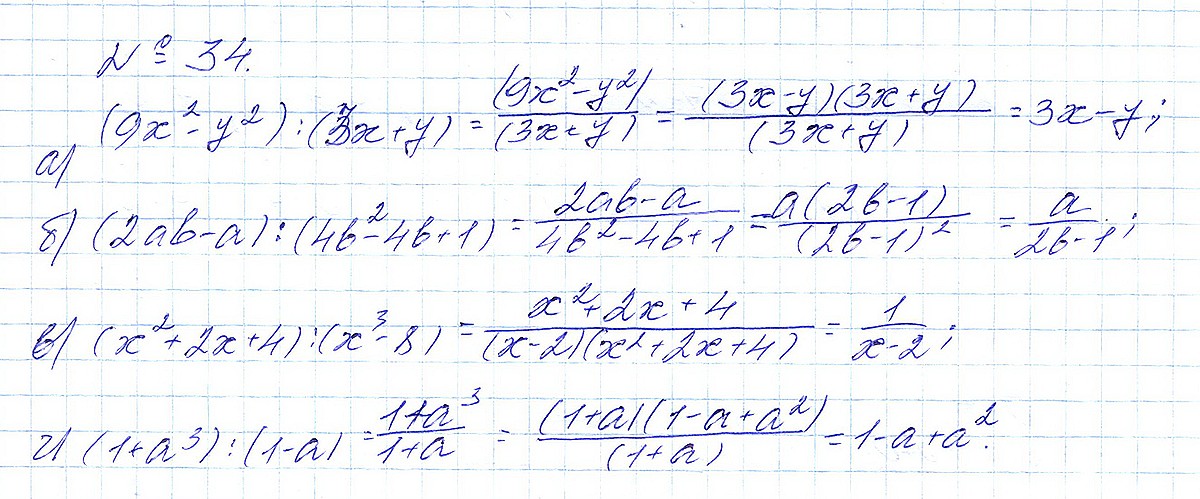 № 34.
а) (9x² - y²) : (3x + y) = (9x² - y²)/(3x + y) = (3x - y)(3x + y)/(3x + y) = 3x - y;
б) (2ab - a) : (4b² - 4b + 1) = 2ab - a/4b² - 4b + 1 = a(2b - 1)/(2b - 1)² = a/2b - 1;
в) (x² + 2x + 4) : (x³ - 8) = x² + 2x + 4/(x - 2)(x² + 2x + 4) = 1/x - 2;
г) (1 + a³) : (1 - a) = 1 + a³/1 + a = (1 + a)(1 - a + a²)/(1 + a) = 1 - a + a².